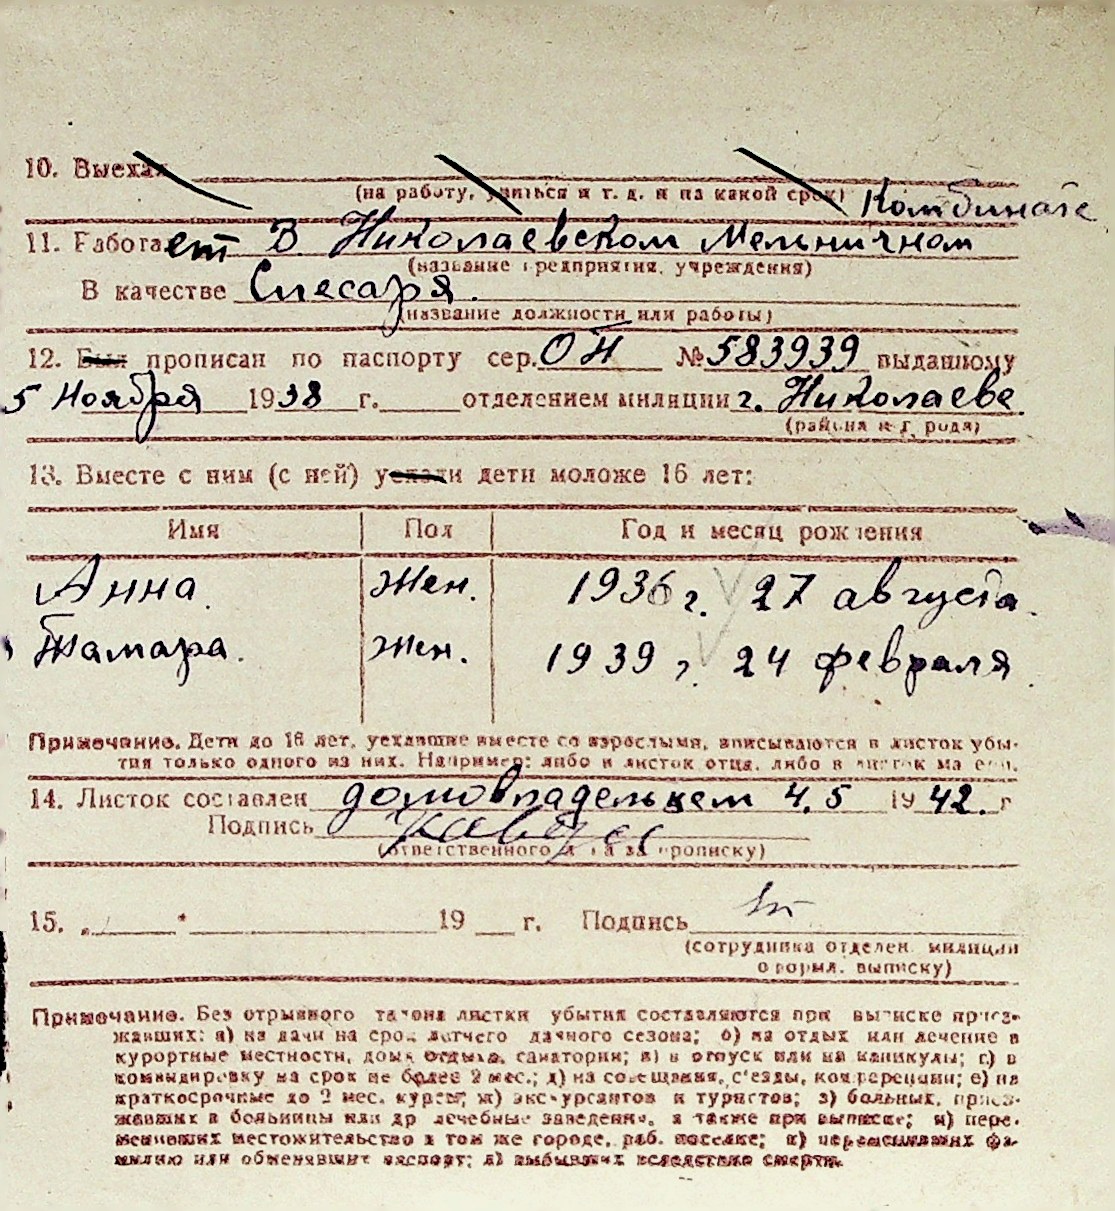 10. Выехал
(на работу, учиться и т. д. и на какой срок)
Комбинате
11. Работает В Николаевском Мельничном
(название предприятия, учреждения)
В качестве Слесаря.
(название должности или работы)
12. Был прописан по паспорту сер. ОП № 583939 выданному
5 Ноября 1938 г. отделением милиции г. Николаеве
(района и города)
13. Вместе с ним (с ней) уехали дети моложе 16 лет:
Имя Пол Год и месяц рождения
Анна. Жен. 1936 г. 27 августа.
Тамара. Жен. 1939 г. 24 февраля.
Примечание. Дети до 16 лет, уехавшие вместе со взрослыми, вписываются в листок убы-
тия только одного из них. Например: либо в листок отца, либо в листок матери.
14. Листок составлен домовладельцем 4.5 1942. г
Подпись
(ответственного лица за прописку)
15. „ " 19 г. Подпись
(сотрудника отделен. милиции
оформл. выписку)
Примечание. Без отрывного талона листки убытия составляются при выписке приез-
жавших: а) на дачи на срок летнего дачного сезона; б) на отдых или лечение в
курортные местности, дома отдыха, санатории; в) в отпуск или на каникулы; г) в
командировку на срок не более 2 мес.; д) на совещания, с'езды, конференции; е) на
краткосрочные до 2 мес. курсы; ж) экскурсантов и туристов; з) больных, приез-
жавших в больницы или др лечебные заведения, а также при выписке; и) пере-
менивших местожительство в том же городе, раб. поселке; к) переменивших фа-
милию или обменявших паспорт; л) выбывших вследствие смерти.